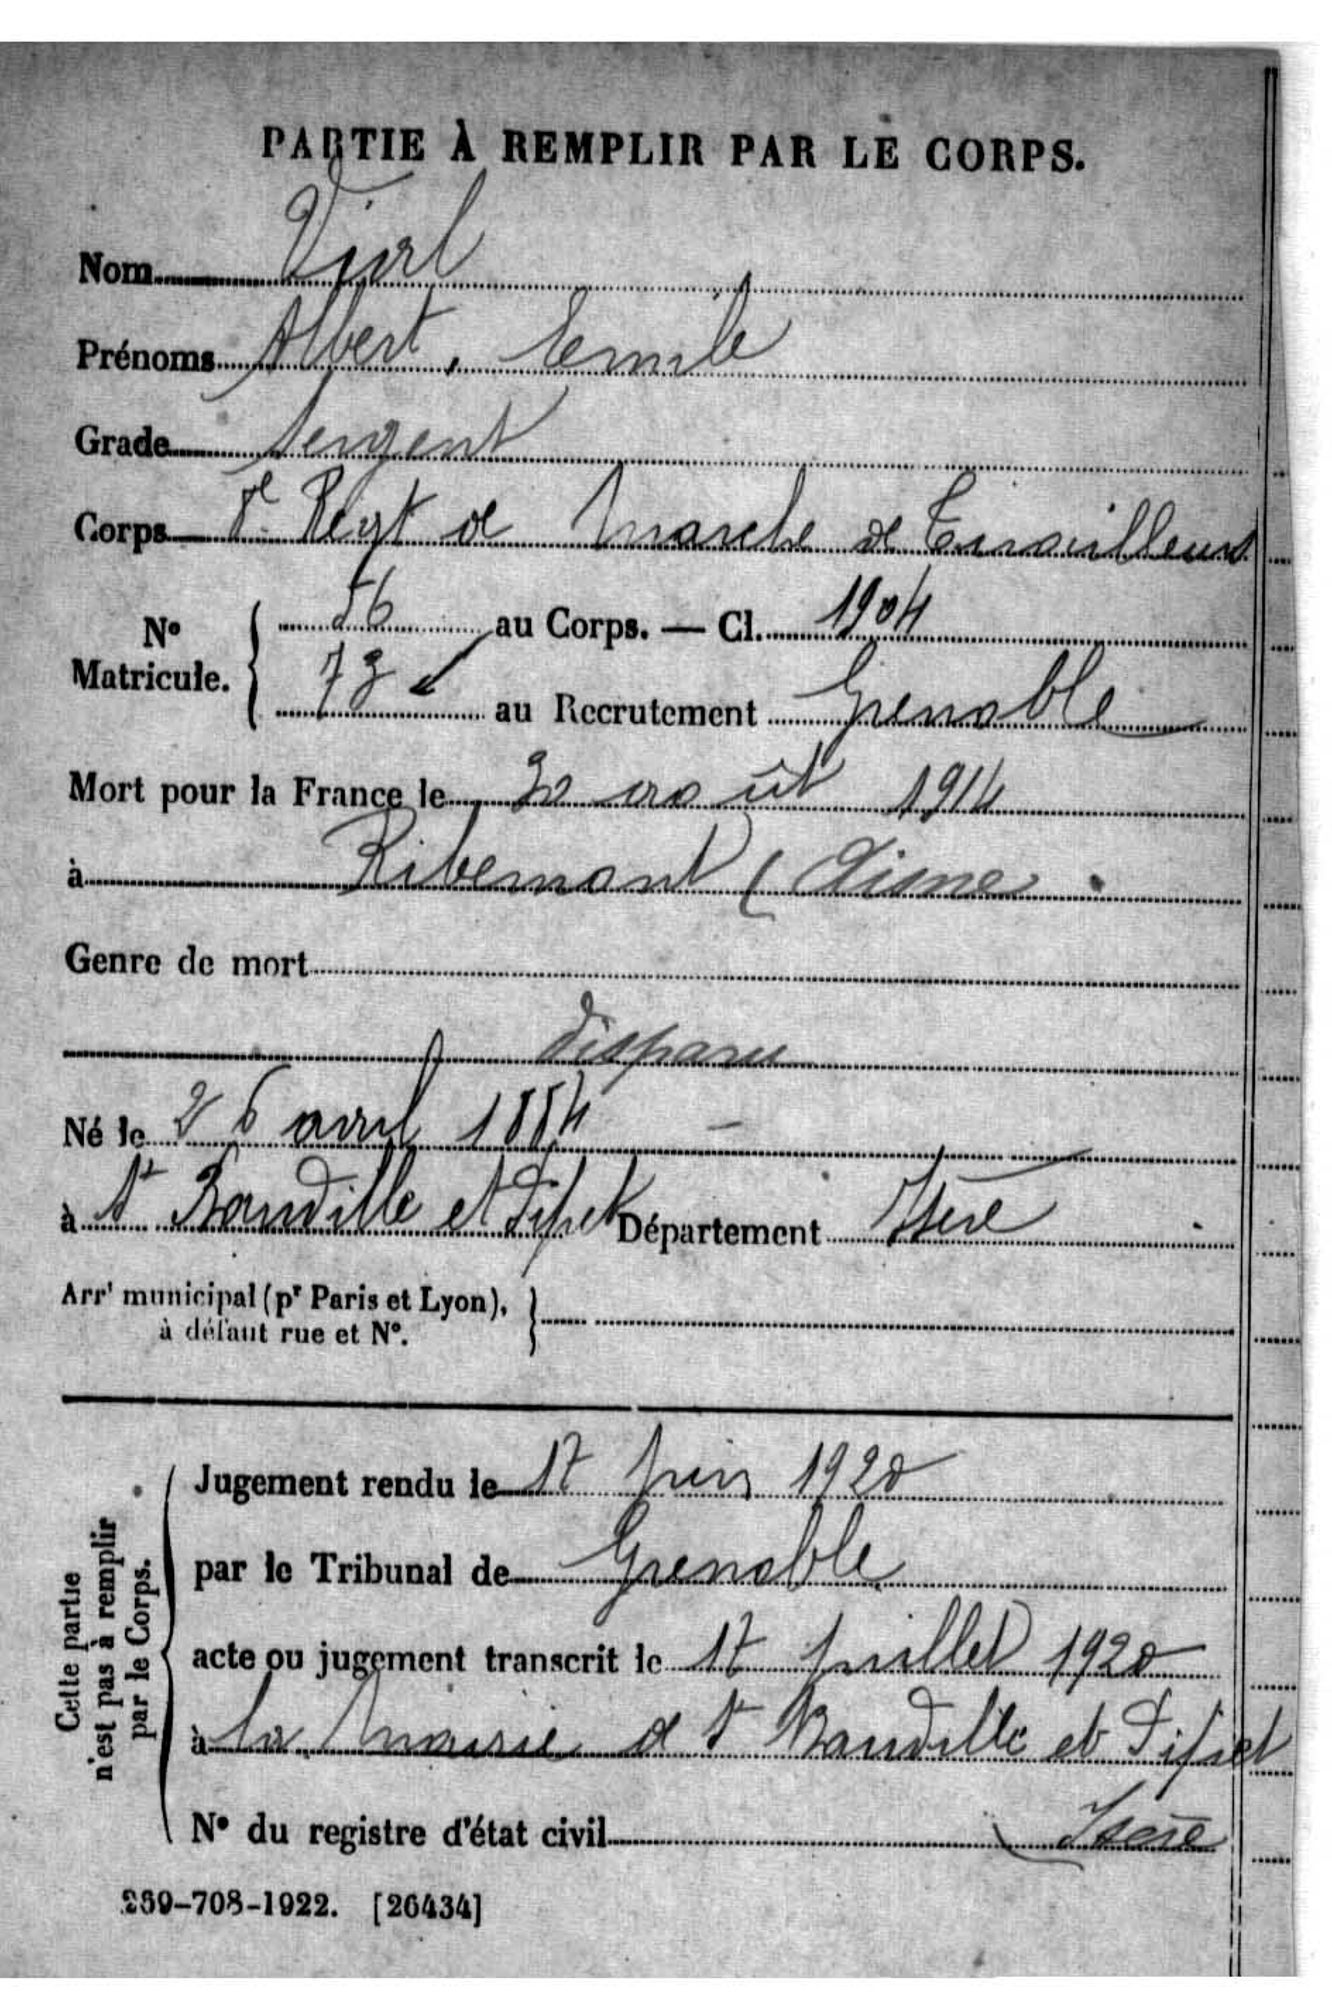 PARTIE À REMPLIR PAR LE CORPS.
Nom Viel
Prénoms Albert, Emile
Grade Sergent
Corps Regt de Marche de Tirailleurs
N° Matricule. 56 au Corps. — Cl. 1904
73 au Recrutement Grenoble
Mort pour la France le 30 août 1914
à Ribemont (Aisne
Genre de mort
disparu
Né le 26 avril 1884
à St Baudille et Pipet Département Isère
Arrt municipal (pr Paris et Lyon),
à défaut rue et N°.
Cette partie
n'est pas à remplir
par le Corps.
Jugement rendu le 17 juin 1920
par le Tribunal de Grenoble
acte ou jugement transcrit le 17 juillet 1920
à la Mairie de St Baudille et Pipet
N° du registre d'état civil (Isère
269-708-1922. [26434]